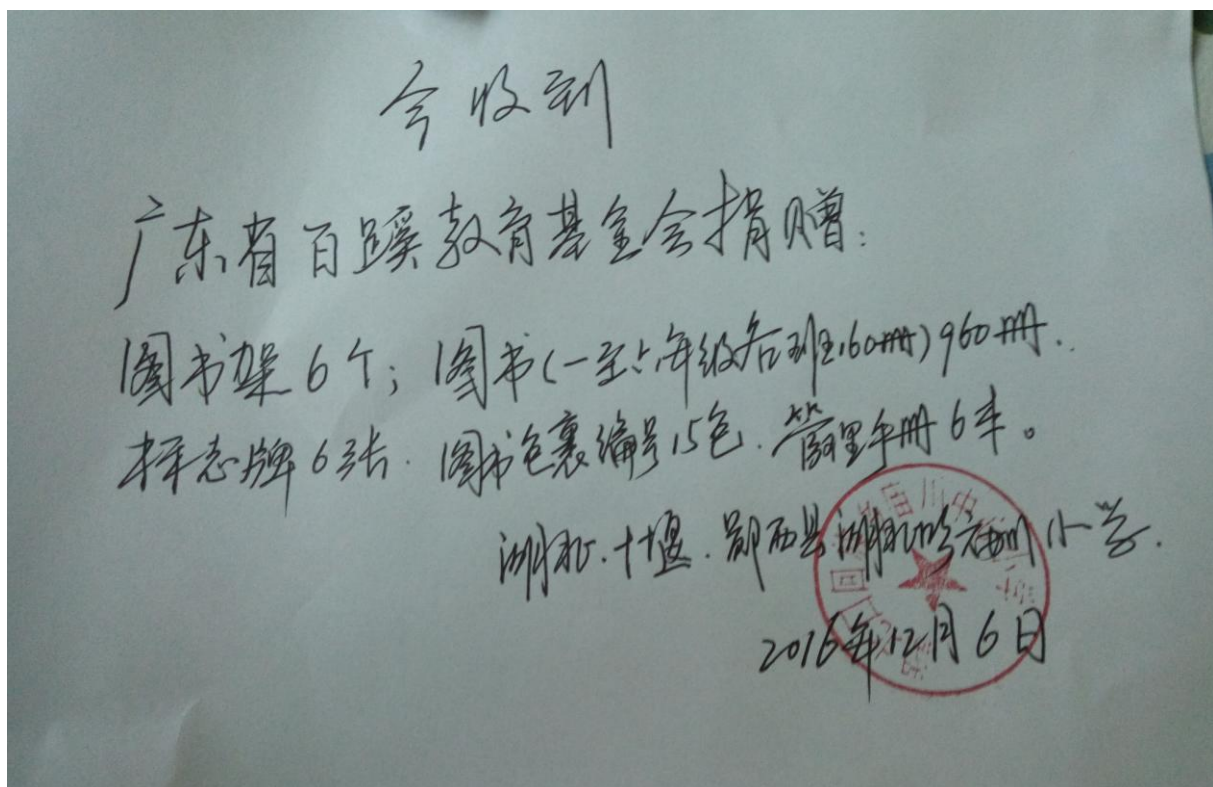 今收到
广东省百蹊教育基金会捐赠:
图书架6个; 图书(一至六年级各班160册)960册.
标志牌6张. 图书包裹编号15包. 管理手册6本。
湖北.十堰.郧西县湖北口庙川小学.
2016年12月6日
庙川中